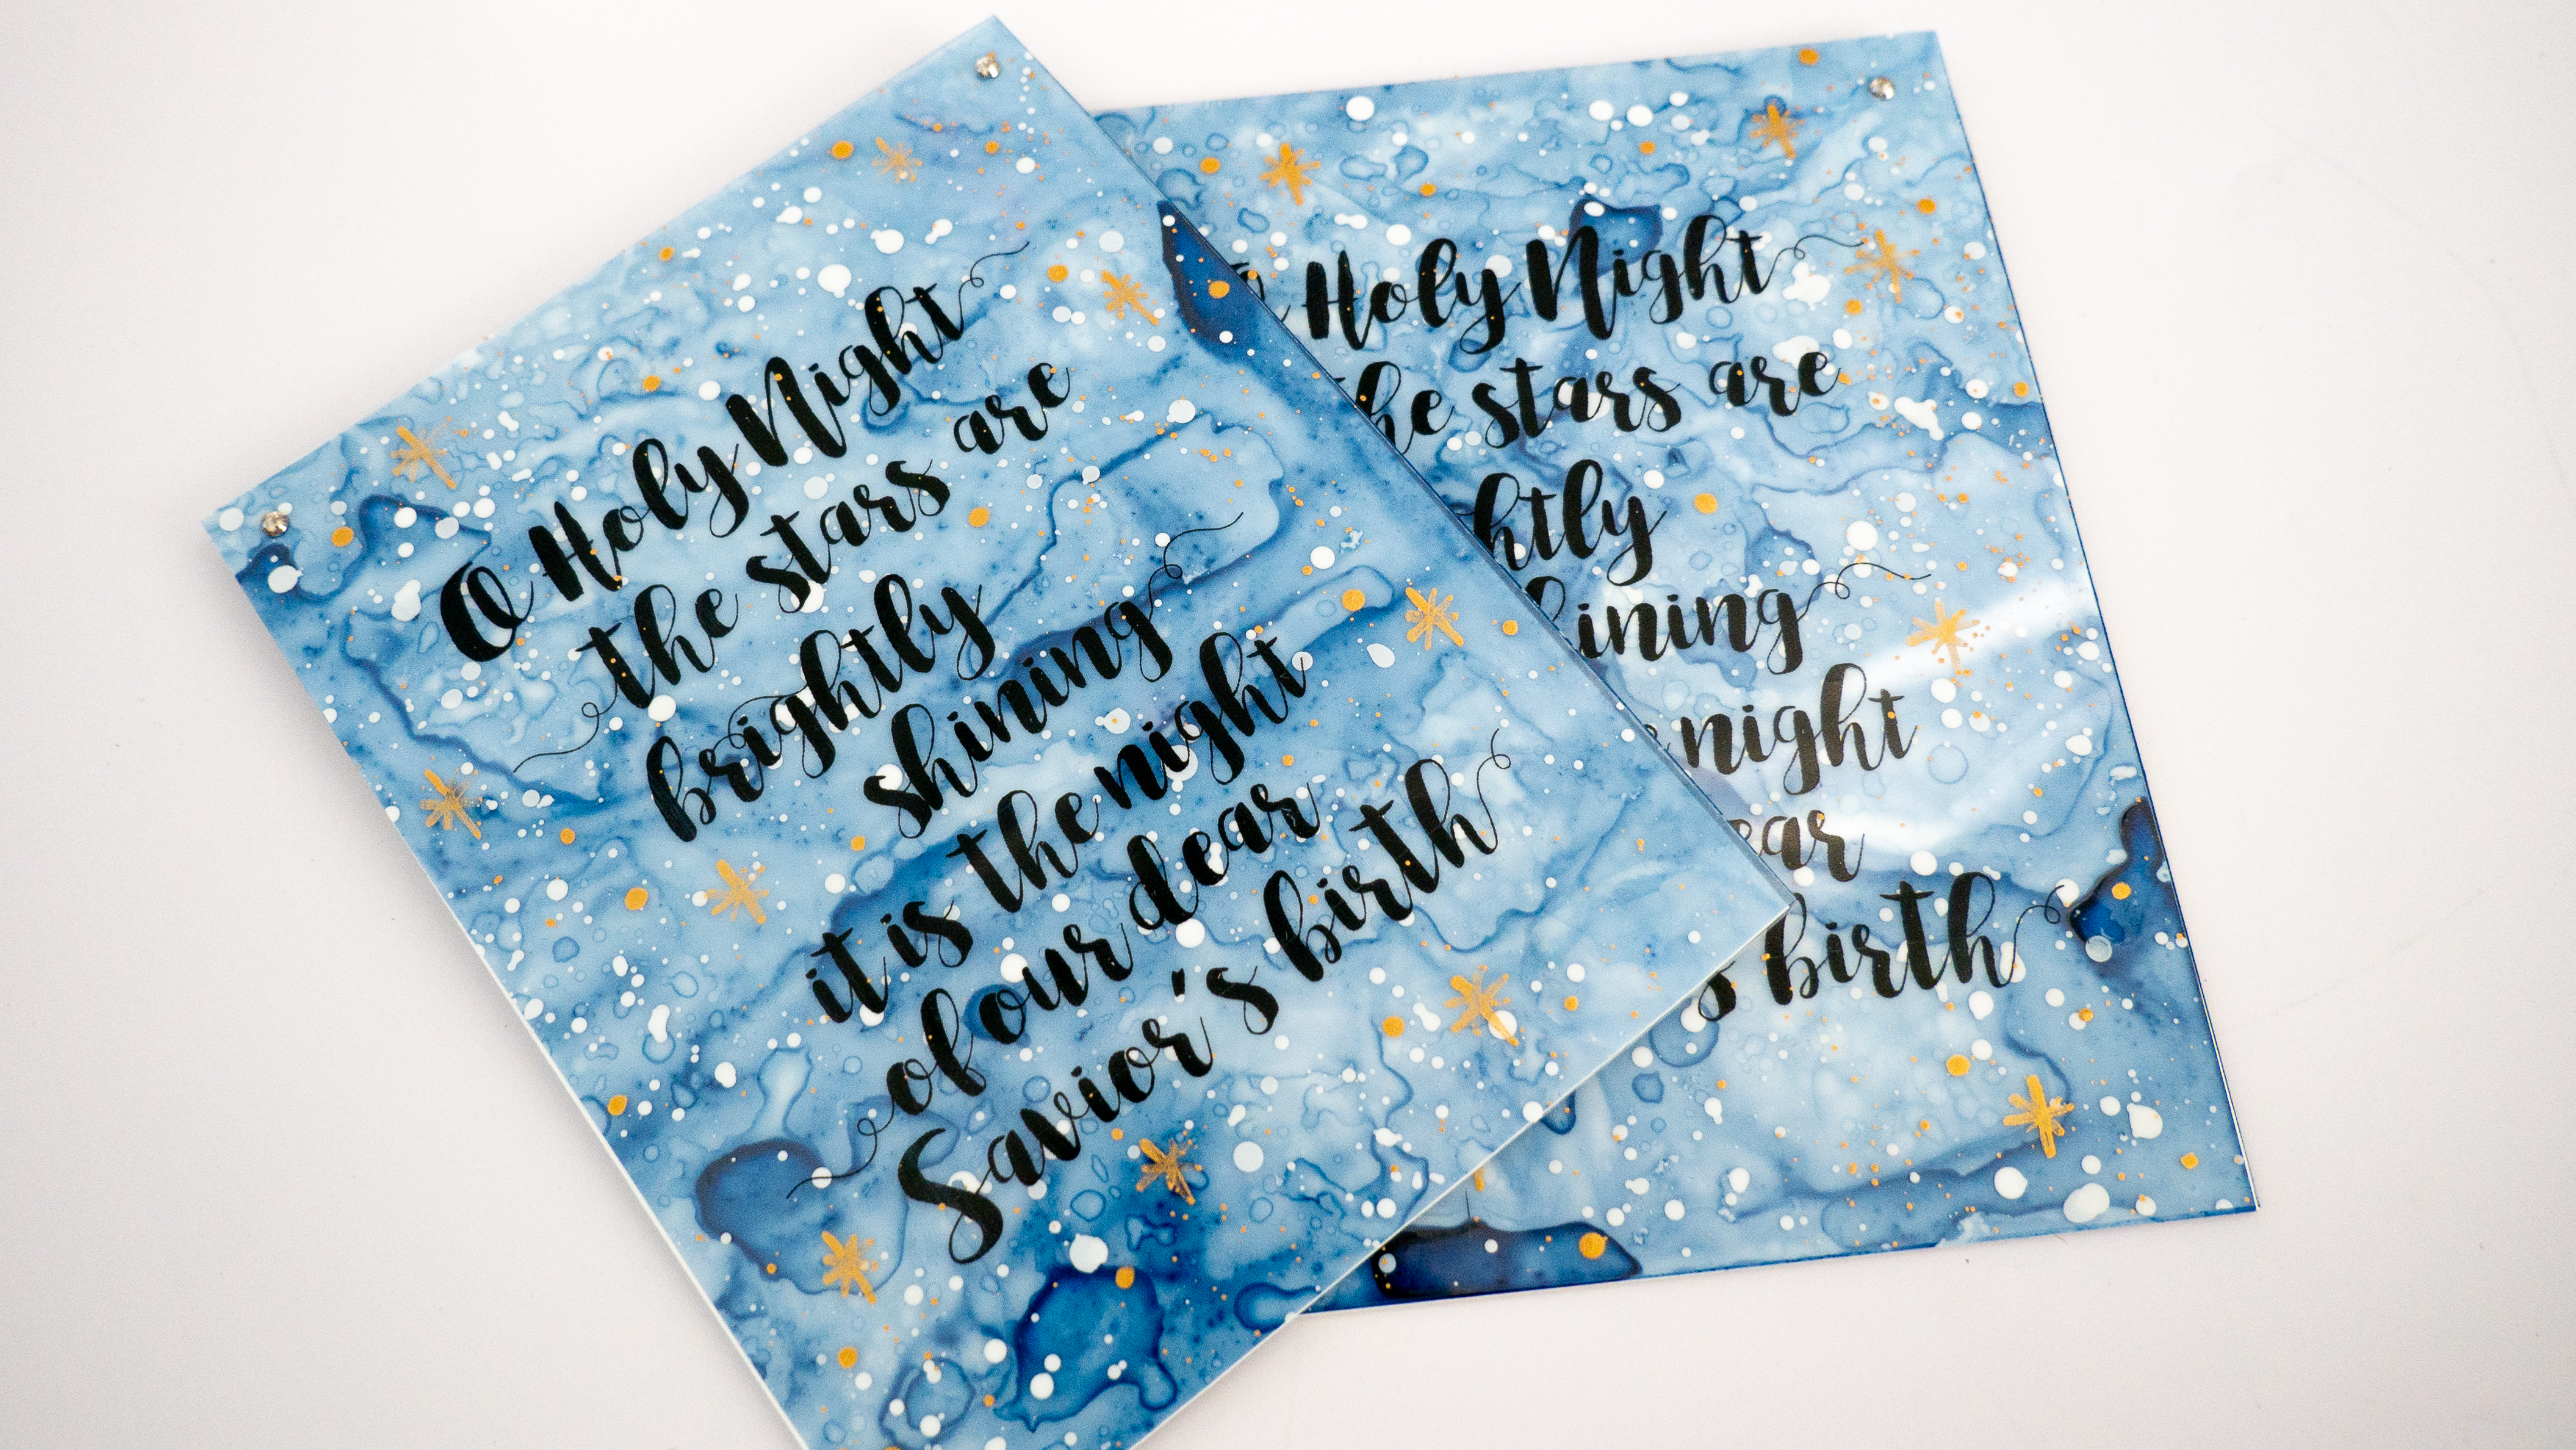 O Holy Night
the stars are
brightly
shining
it is the night
of our dear
Savior's birth
Holy Night
he stars are
htly
hining
night
ear
s birth